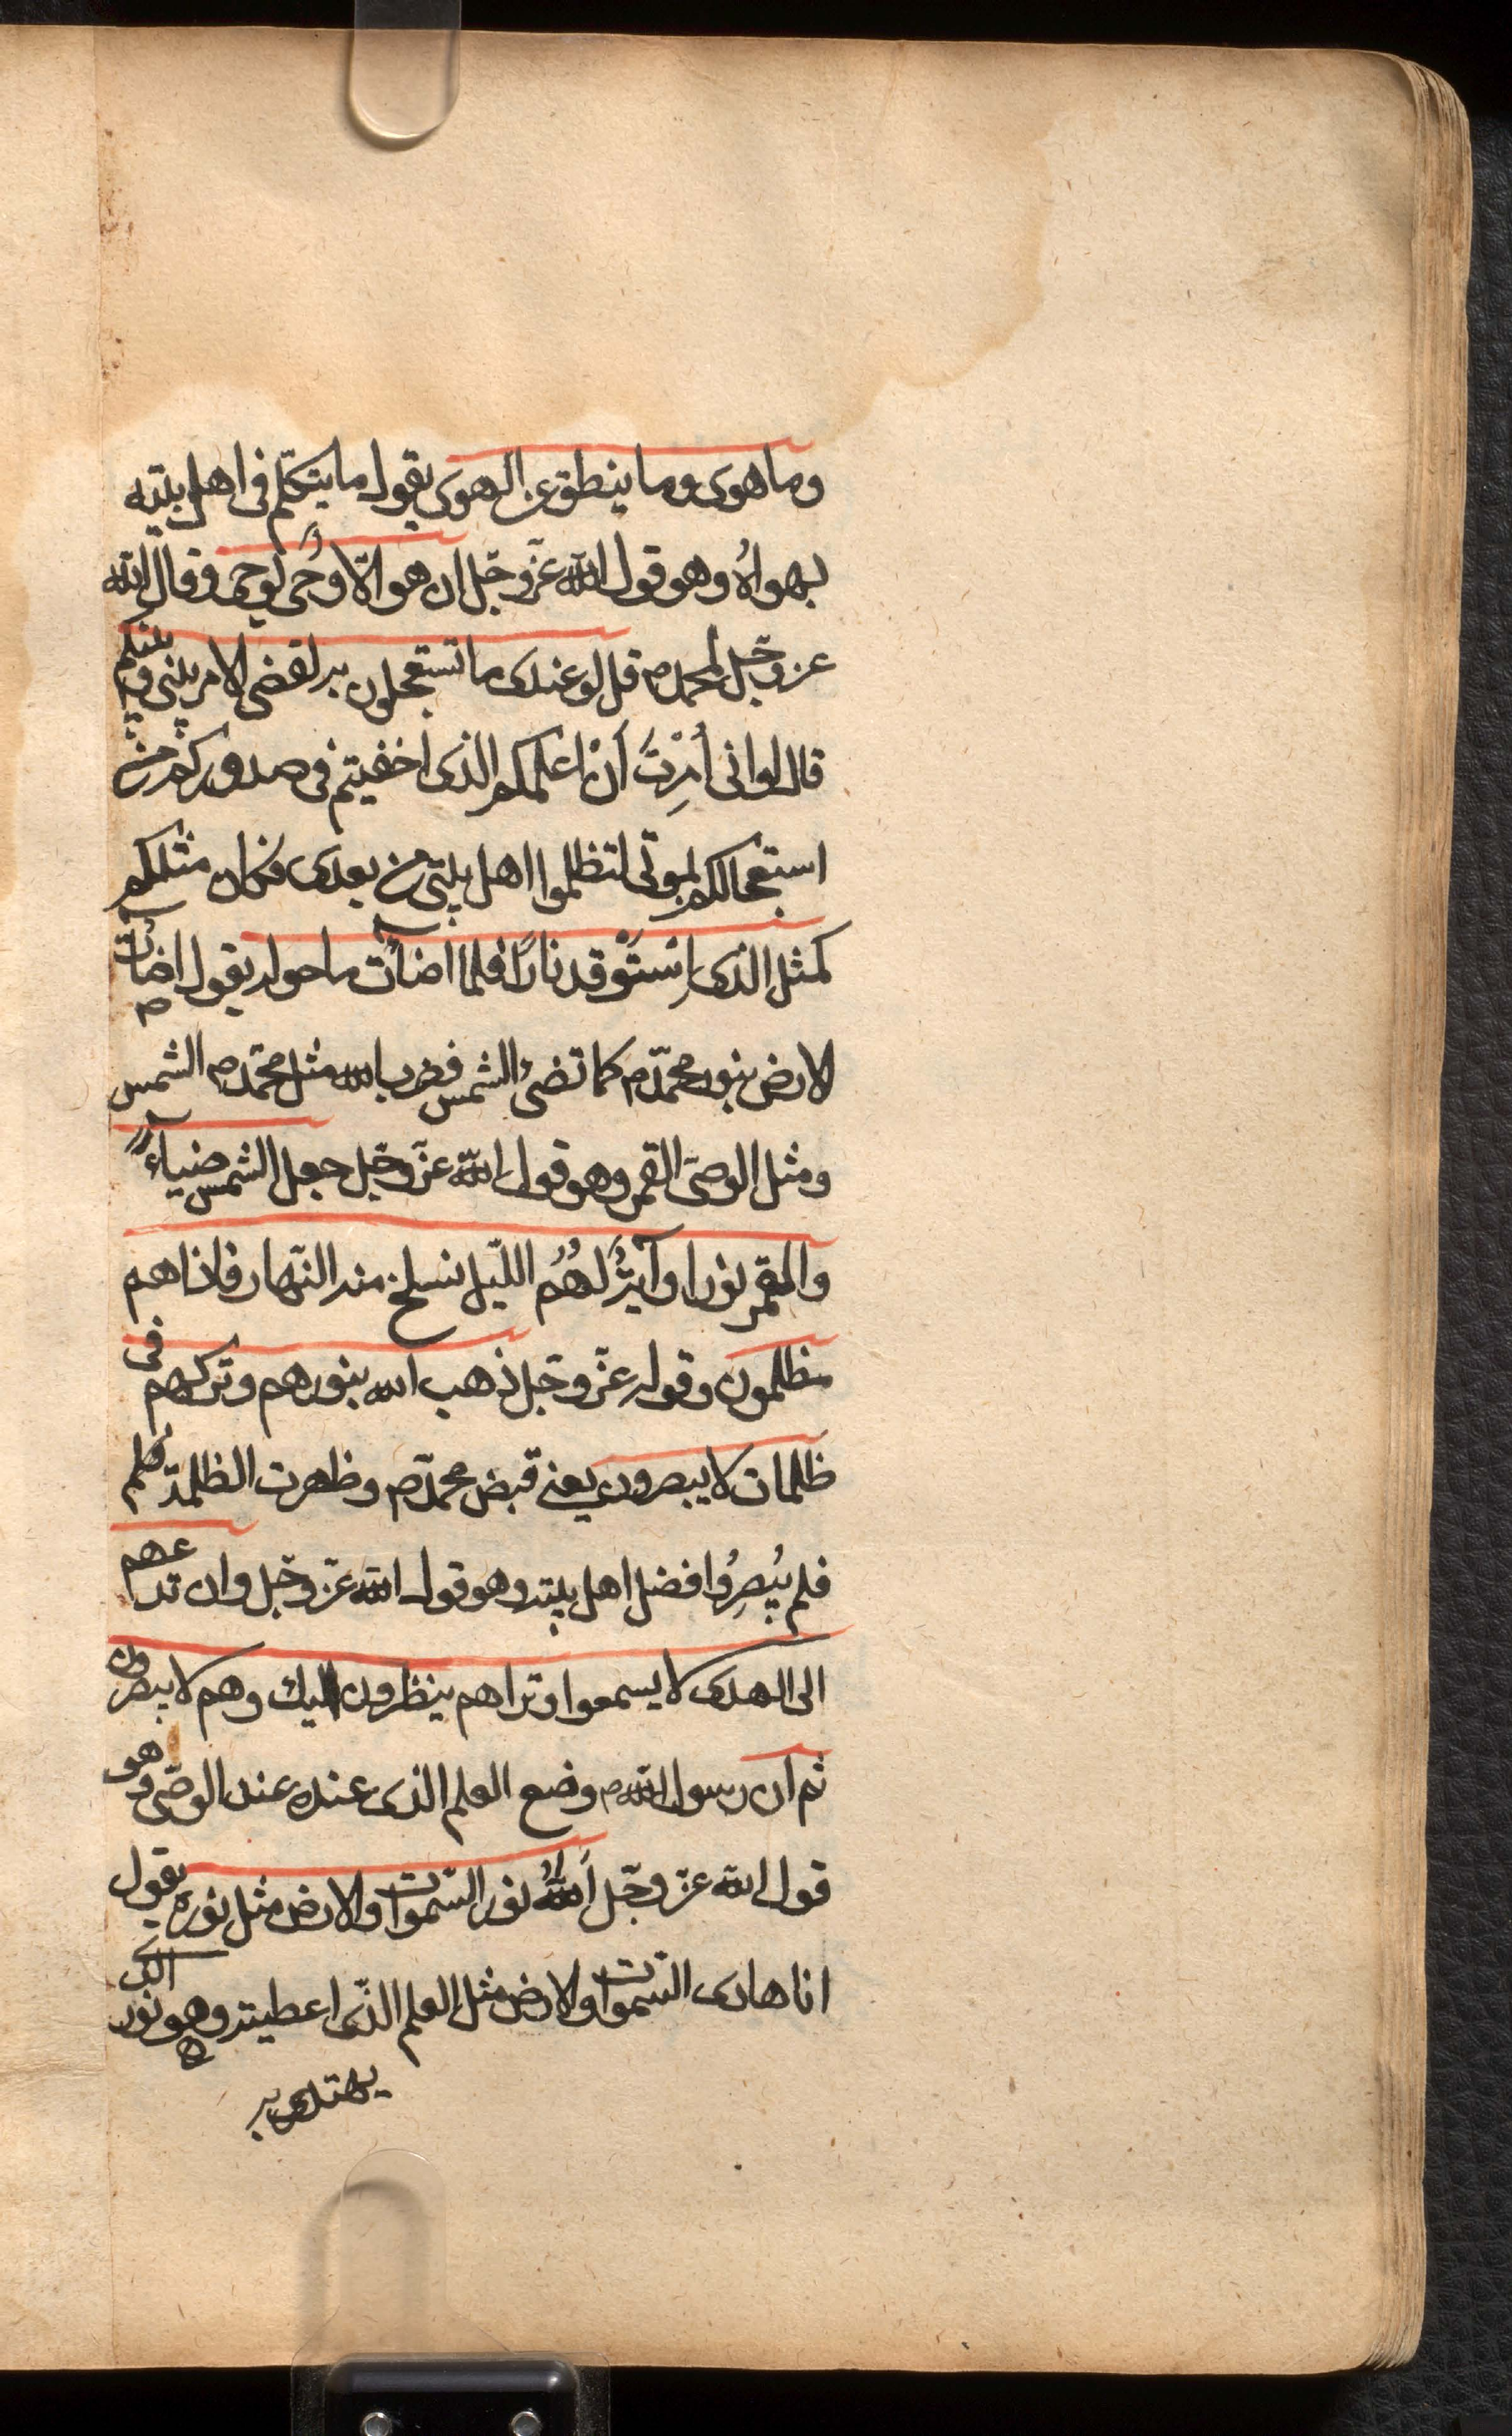 وما هوى وما ينطق عن الهوى يقول ما يتكلم فى اهل بيته
بهواه وهو قول الله عزّ وجلّ ان هو الّا وحىٌ يوحى وقال الله
عز وجلّ لمحمد ص قل لو عندى ما تستعجلون به لقضى الامر بينى وبينكم
قال لو انى اُمِرْتُ أَنْ اعلمكم الذى اخفيتم فى صدوركم من
استعجالكم بموتى لتظلموا اهل بيتى من بعدى فكان مثلكم
كمثل الذى اِسْتَوْقد نارًا فلما اضاءَت ما حوله يقول اضاءت
الارض بنور محمّد ص كما تضىء الشمس فضرب الله مثل محمّد ص الشمس
ومثل الوصىّ القمر وهو قول الله عزّ وجلّ جعل الشمس ضياءً
والقمر نورا وآيةٌ لهُمُ اللّيل نسلخ منه النّهار فاذا هم
مظلمون وقوله عزّ وجلّ ذهب الله بنورهم وتركهم فى
ظلمات لا يبصرون يعنى قبض محمّد ص وظهرت الظلمة فلم
فلم يُبصِرُوا فضل اهل بيته وهو قول الله عزّ وجلّ وان تدعهم
الى الهدى لا يسمعوا وتراهم ينظرون اليك وهم لا يبصرون
ثم ان رسول الله ص وضع العلم الذى عنده عند الوصّى وهو
قول الله عزّ وجّل اَللّٰهُ نور السّموات والارض مثل نوره يقول
انا هادى السّموات والارض مثل العلم الّذى اعطيته وهو نور الذى
يهتدى به